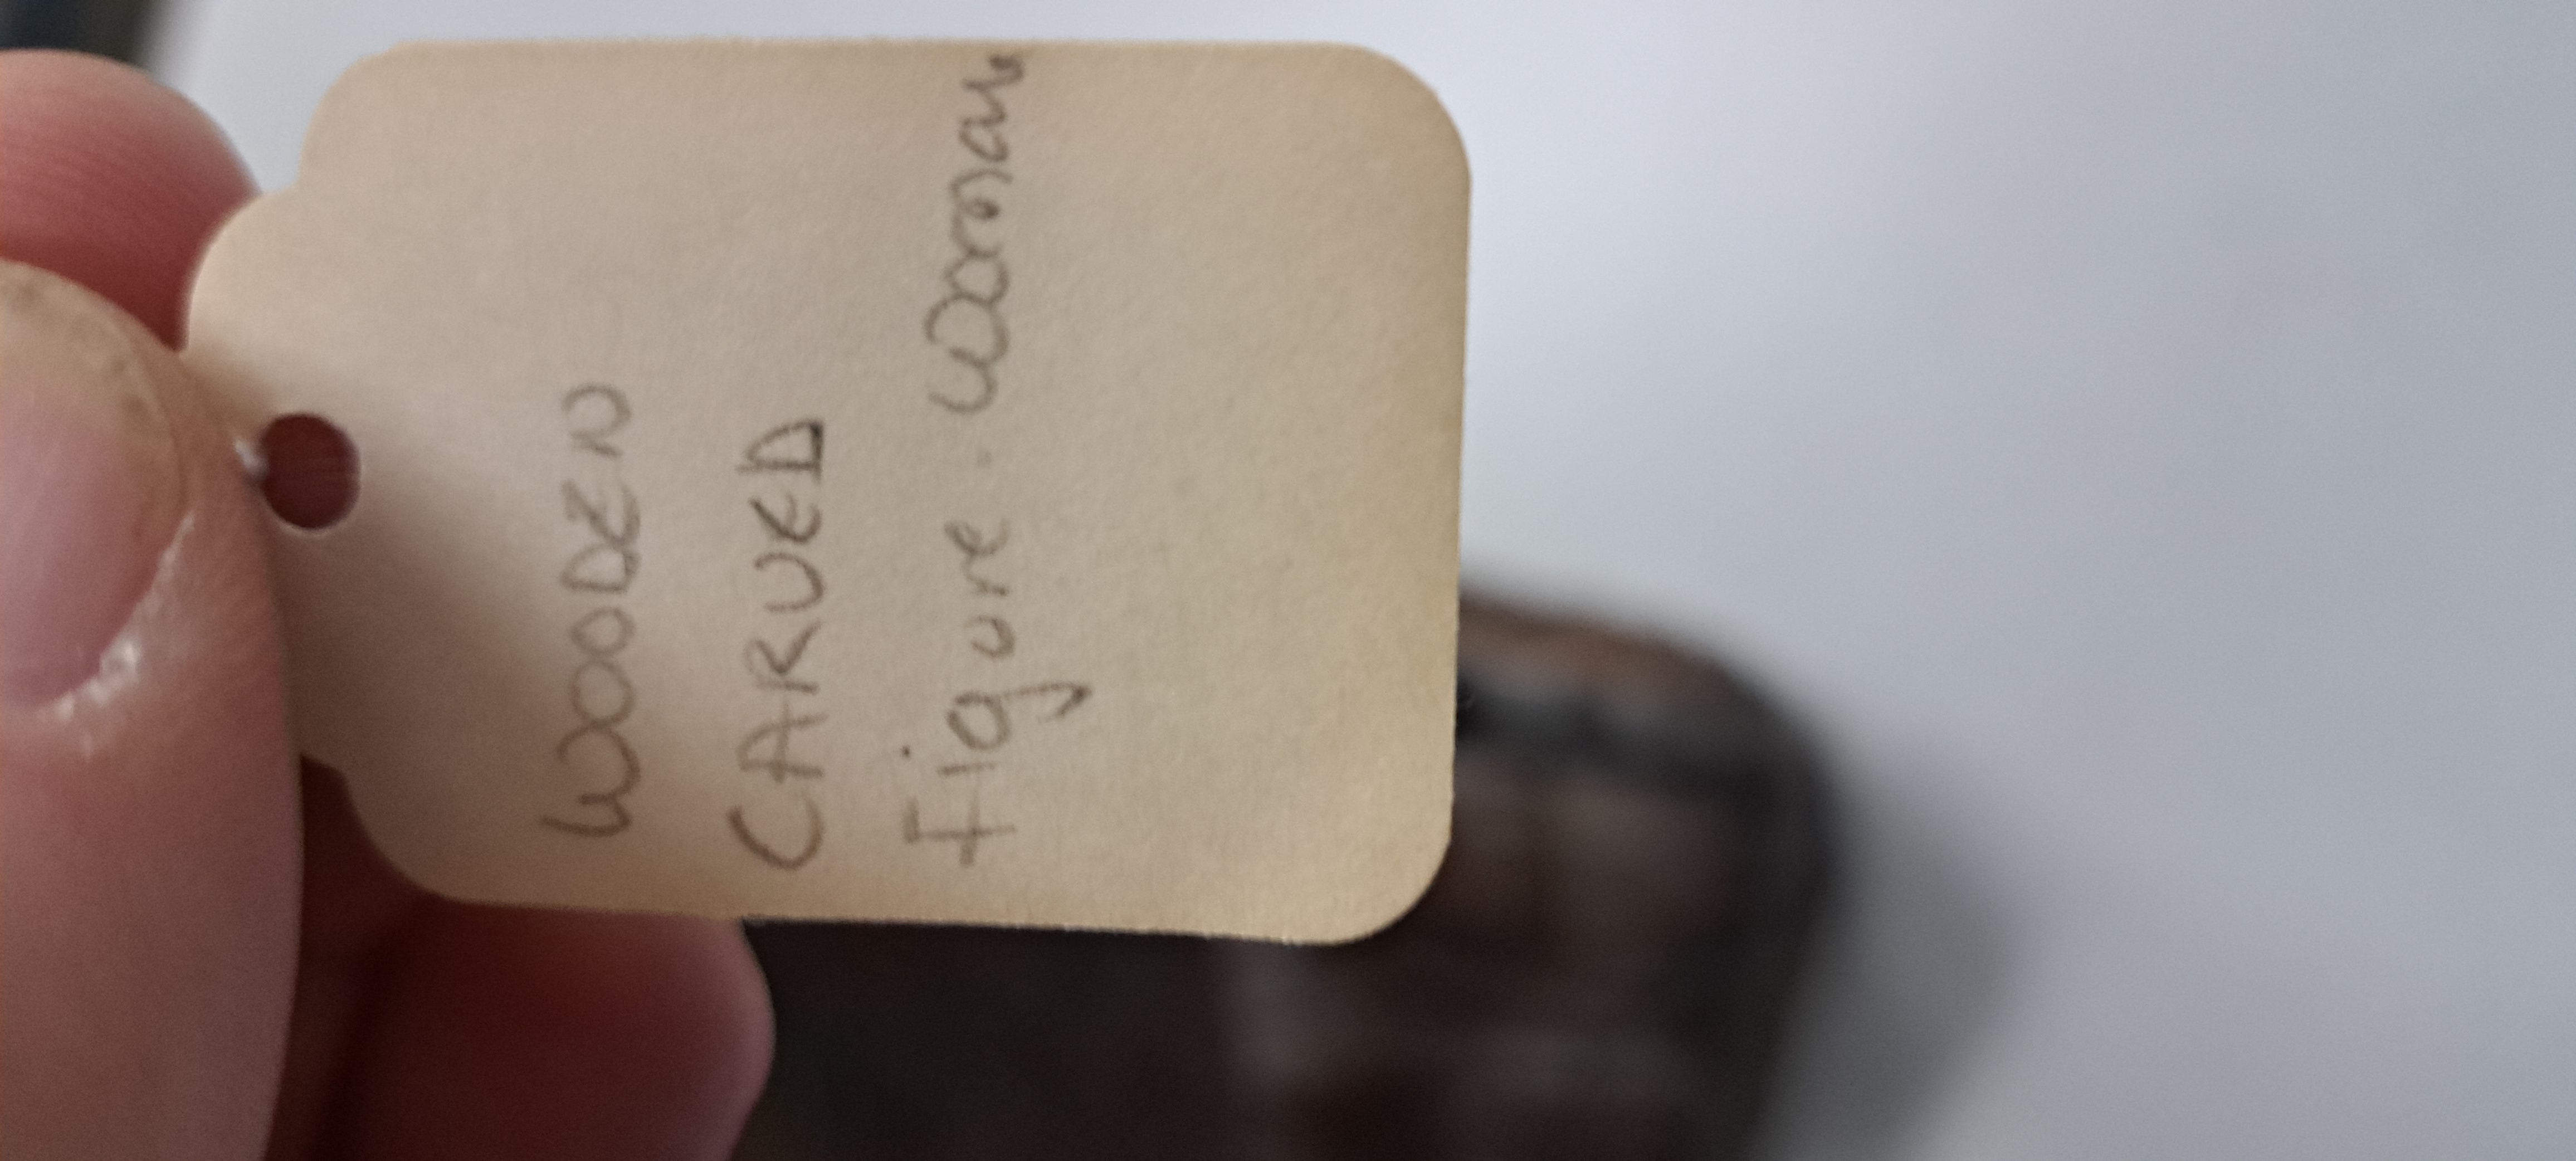 WOODEN
CARVED
Figure - Woman